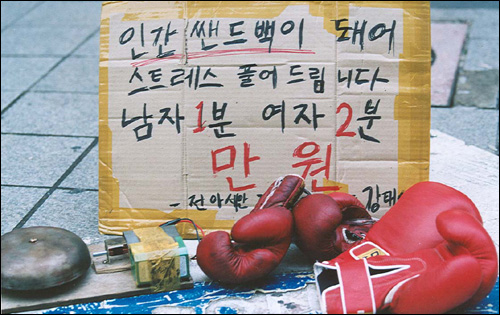 인간 쌘드백이 돼어
스트레스 풀어 드립니다
남자 1분 여자 2분
만 원
- 전 아시안